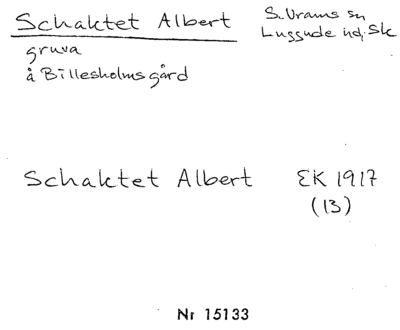 Schaktet Albert
S. Vrams sn
Luggude hd, Sk
gruva
å Billesholms gård
Schaktet Albert EK 1917
(13)
Nr 15133